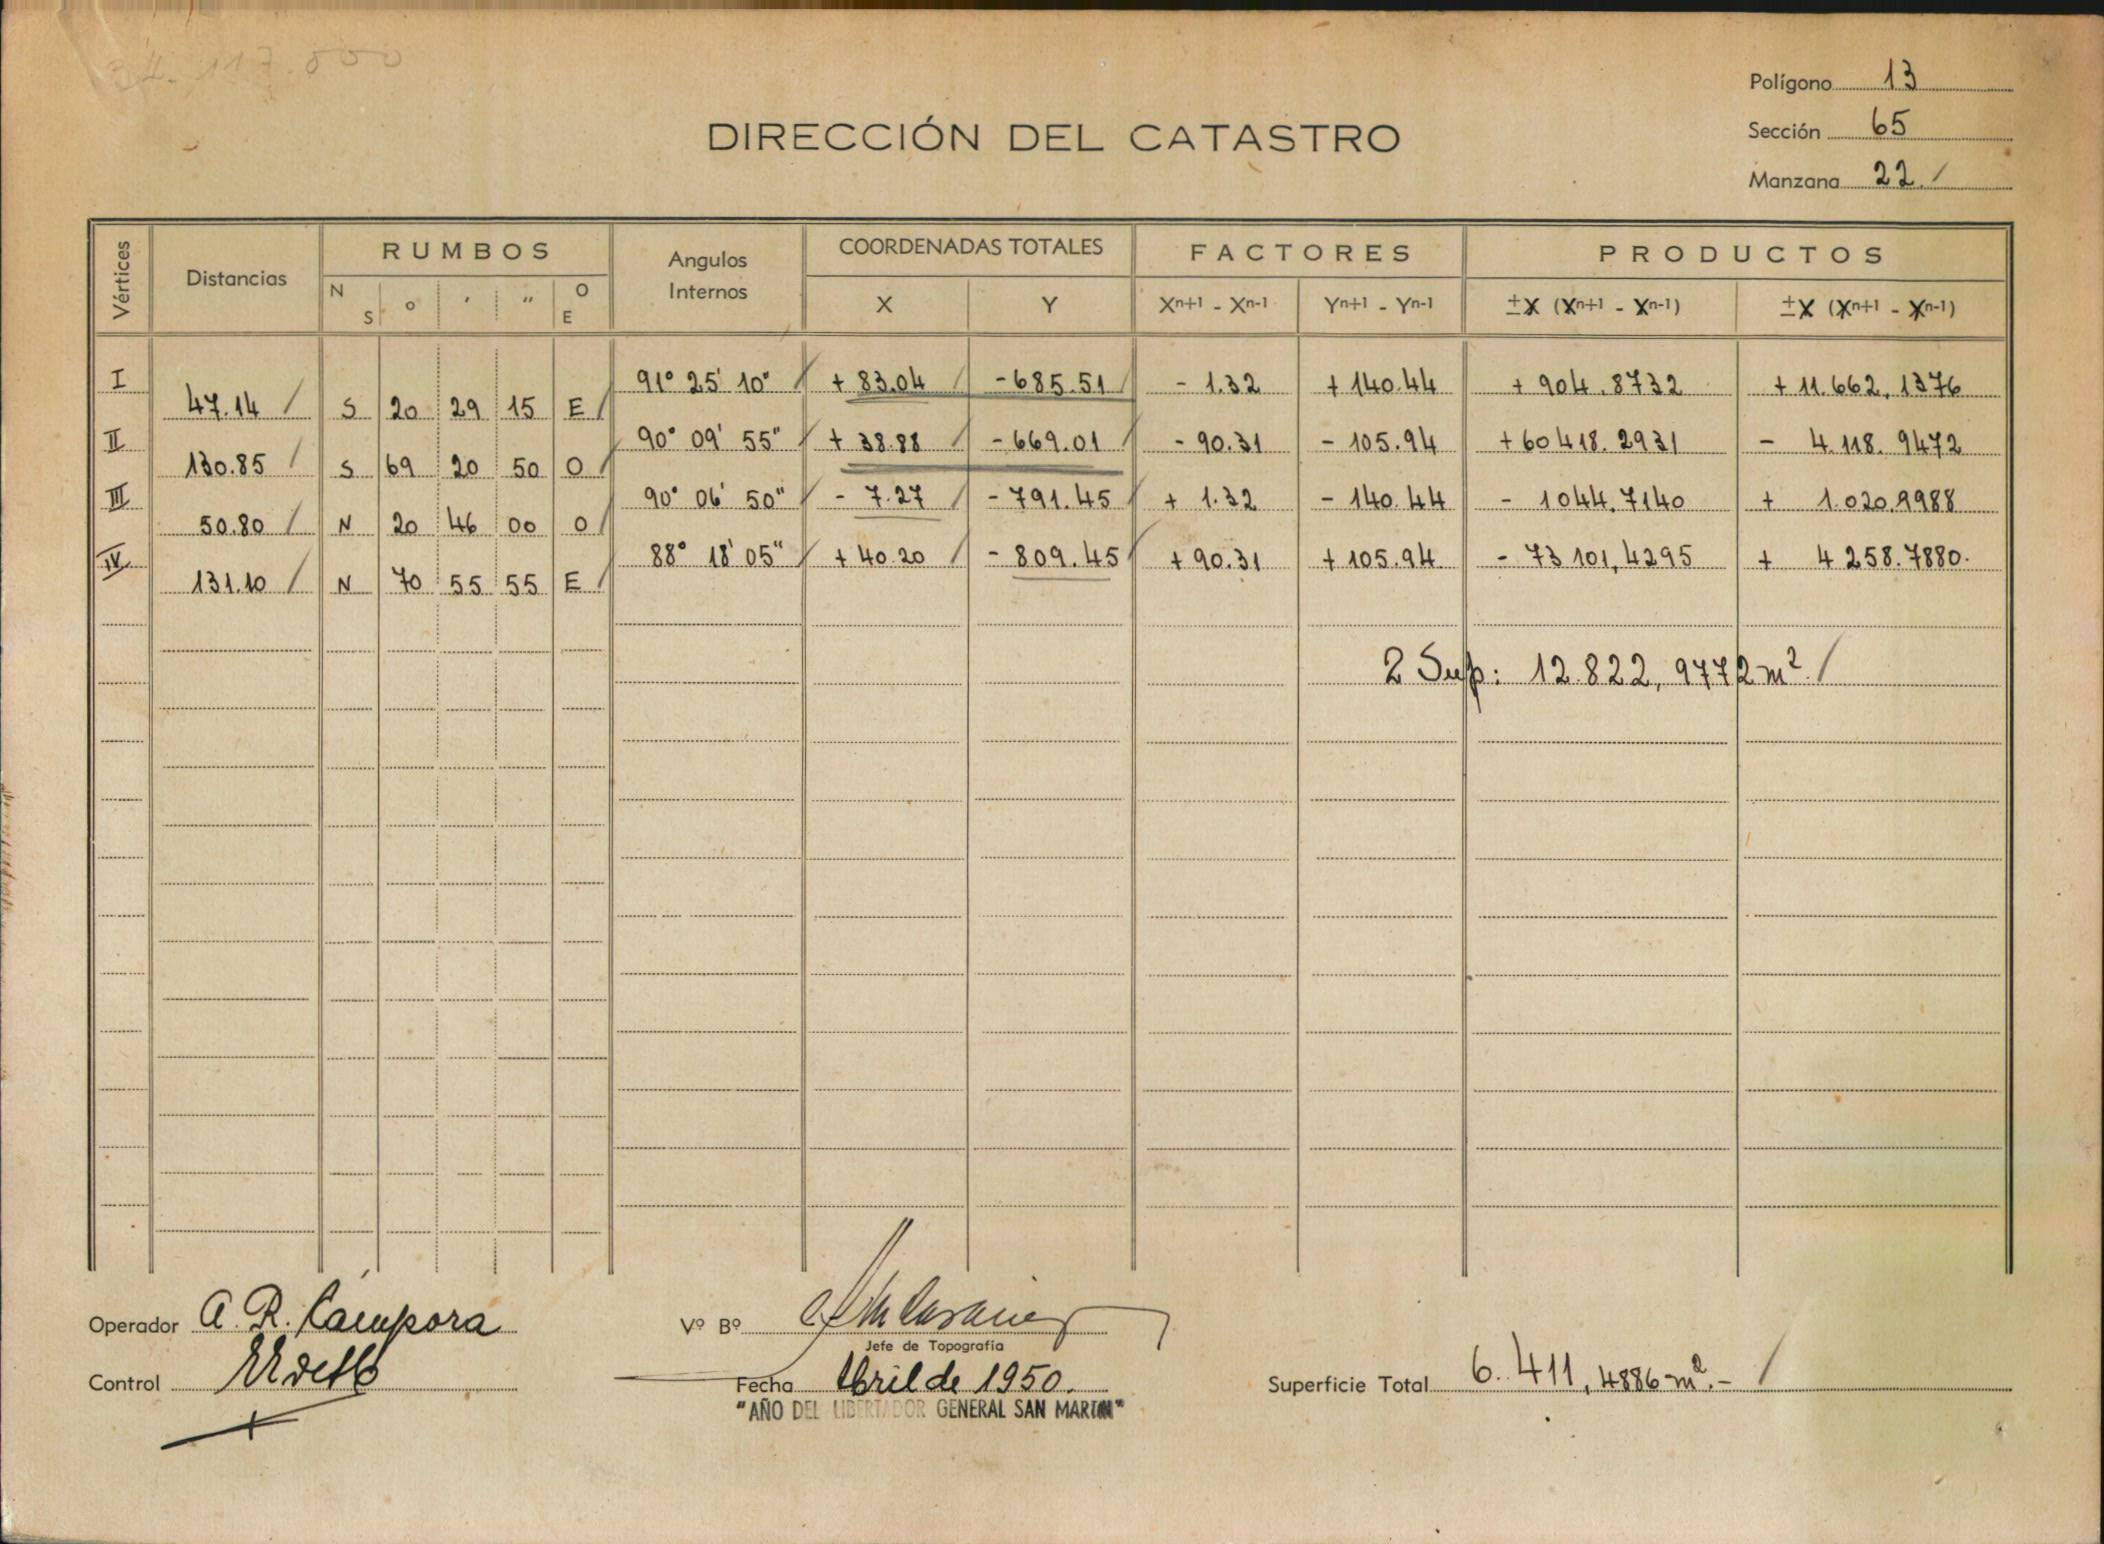 34.117.000
Polígono 13
Sección 65
Manzana 22 /
DIRECCIÓN DEL CATASTRO
Vértices Distancias RUMBOS Angulos Internos COORDENADAS TOTALES FACTORES PRODUCTOS
N S o ′ ″ O E X Y Xn+1 - Xn-1 Yn+1 - Yn-1 ±X (Xn+1 - Xn-1) ±X (Xn+1 - Xn-1)
I 91° 25' 10" / + 83.04 / - 685.51 / - 1.32 + 140.44 + 904.8732 + 11.662,1376
47.14 / S 20 29 15 E /
II 90° 09' 55" / + 38.88 / - 669.01 / - 90.31 - 105.94 + 60418.2931 - 4.118.9472
130.85 / S 69 20 50 O /
III 90° 06' 50" / - 7.27 / - 791.45 / + 1.32 - 140.44 - 1044.7140 + 1.020.9988
50.80 / N 20 46 00 O /
IV 88° 18' 05" / + 40.20 / - 809.45 / + 90.31 + 105.94 - 73101,4295 + 4258.7880.
131.10 / N 70 55 55 E /
2 Sup: 12.822,9772 m² /
Operador A. R. Cámpora
Vº Bº
Jefe de Topografía
Control
Fecha Abril de 1950.
"AÑO DEL LIBERTADOR GENERAL SAN MARTIN"
Superficie Total 6.411,4886 m².- /